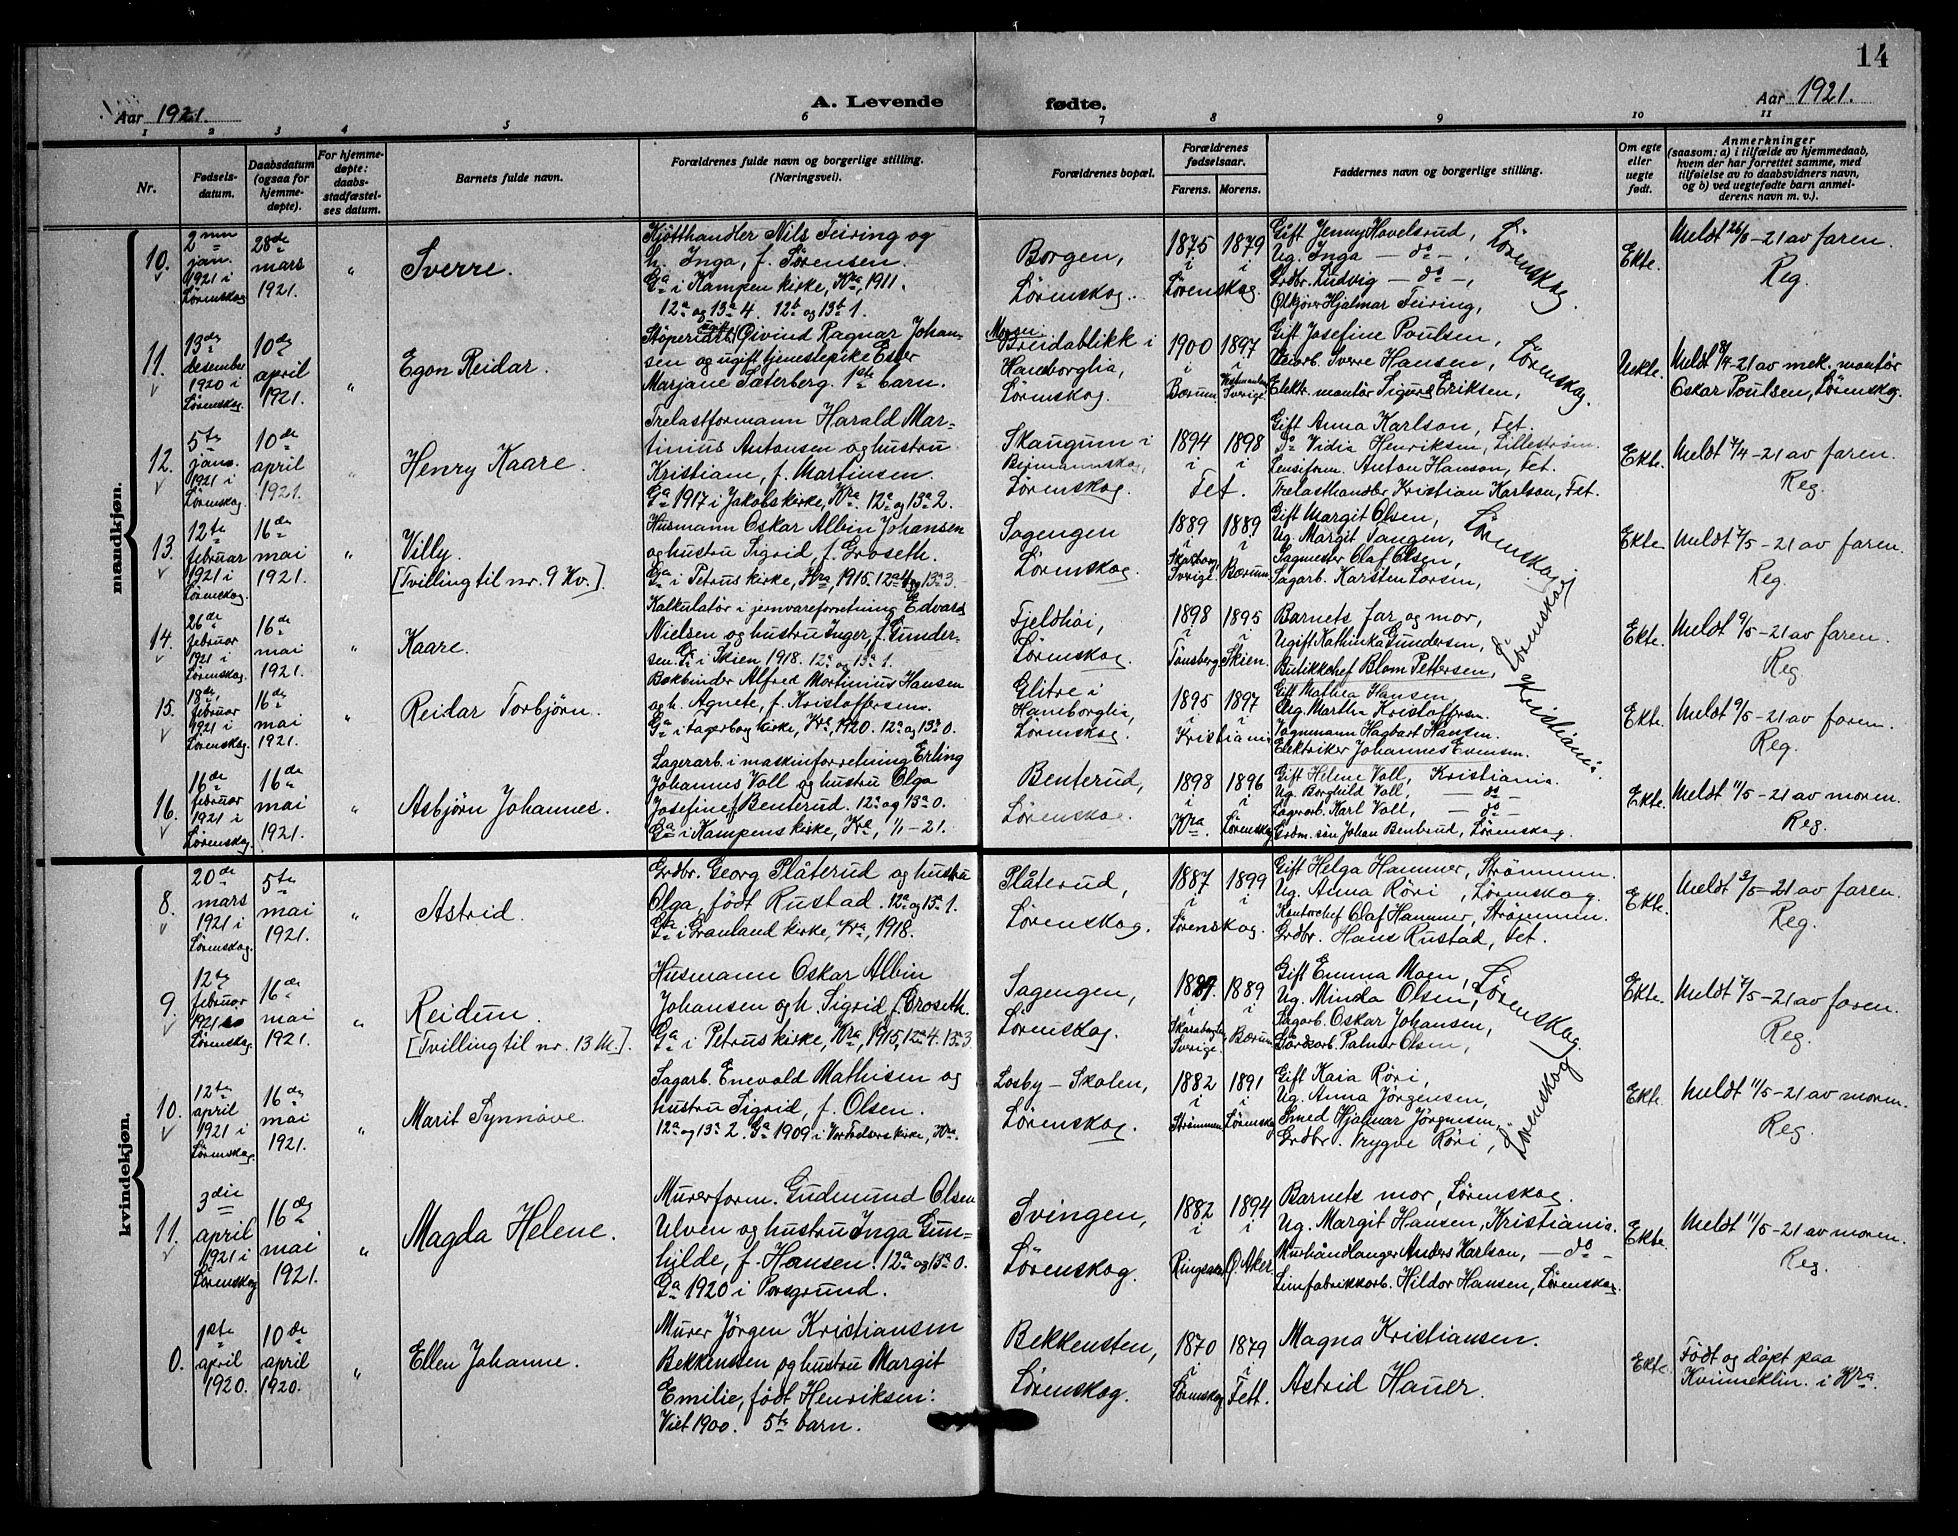 14
Aar 1921.
A. Levende fødte.
Aar 1921.
1 2 3 4 5 6 7 8 9 10 11
Nr.
Fødsels-
datum.
Daabsdatum
(ogsaa for
hjemme-
døpte).
For hjemme-
døpte:
daabs-
stadfæstel-
ses datum.
Barnets fulde navn.
Forældrenes fulde navn og borgerlige stilling.
(Næringsvei).
Forældrenes bopæl.
Forældrenes
fødselsaar.
Farens. Morens.
Faddernes navn og borgerlige stilling.
Om egte
eller
uegte
født.
Anmerkninger
(saasom: a) i tilfælde av hjemmedaab,
hvem der har forrettet samme, med
tilføielse av to daabsvidners navn,
og b) ved uegtefødte barn anmel-
derens navn m. v.).
mandkjøn.
10.
2 nn
jan.
1921 i
Lørenskog
28de
mars
1921.
"
Sverre.
Kjøtthandler Nils Feiring og
h. Inga, f. Sørensen.
Ga i Kampen kirke, Kra, 1911.
12a og 13a 4. 12b og 13b 1.
Borgen,
Lørenskog.
1875 1879
i i
Lørenskog.
Gift Jenny Hovelsrud,
Ug. Inga — do —,
Grdbr. Ludvig — do —,
Ølkjører Hjalmar Feiring,
Lørenskog.
Ekte.
Meldt 26/3 - 21 av faren.
Reg.
11.
13de
desember
1920 i
Lørenskog.
10de
april
1921.
"
Egon Reidar.
Støperiarb. Øivind Ragnar Johan-
sen og ugift tjenestepike Ester
Marjane Sæterberg. 1ste barn.
Moren
Breidablikk i
Haneborglia,
Lørenskog.
1900 1897
i i
Bærum. Sverige
Gift Josefine Poulsen,
Veiarb. Sverre Hansen,
Elektr. montør Sigurd Eriksen,
Lørenskog.
Uekte.
Meldt 8/4 - 21 av mek. montør
Oskar Poulsen, Lørenskog.
12.
5te
jan.
1921 i
Lørenskog.
10de
april
1921.
"
Henry Kaare.
Trelastformann Harald Mar-
tinius Antonsen og hustru
Kristiane, f. Martinsen.
Ga 1917 i Jakobs kirke, Kra. 12a og 13a 2.
Skaugum i
Lørenskog.
1894 1898
i i
Fet.
Gift Anna Karlson, Fet.
do Vidia Henriksen, Lillestrøm.
Lensiform. Anton Hanson, Fet.
Trelasthandler Kristian Karlson, Fet.
Ekte.
Meldt 7/4 - 21 av faren.
Reg.
13.
12te
februar
1921 i
Lørenskog.
16de
mai
1921.
"
Villy.
[Tvilling til nr. 9 Kv.]
Husmann Oskar Albin Johansen
og hustru Sigrid, f. Groseth.
Ga i Petrus kirke, Kra, 1915. 12a 4 og 13a 3.
Sagengen
Lørenskog.
1889 1889
i i
Skarborg Bærum
Sverige.
Gift Margit Olsen,
Ug. Margit Tangen,
Sagmester Olaf Olsen,
Sagarb. Karsten Larsen,
Lørenskog
Ekte.
Meldt 7/5 - 21 av faren.
Reg.
14.
26de
februar
1921 i
Lørenskog.
16de
mai
1921.
"
Kaare.
Kalkulatør i jernvareforretning Edvard
Nielsen og hustru Inger, f. Gunder-
sen. Ga i Skien 1918. 12a og 13a 1.
Fjeldhøi,
Lørenskog.
1898 1895
i i
Tønsberg Skien.
Barnets far og mor,
Ugift Kathinka Gundersen,
Butikkchef Blom Pettersen,
Lørenskog
Ekte.
Meldt 9/5 - 21 av faren.
Reg
15.
18de
februar
1921 i
Lørenskog.
16de
mai
1921.
"
Reidar Torbjørn.
Bokbinder Alfred Martinius Hansen
og h. Agnete, f. Kristoffersen.
Ga i Fagerborg kirke, Kra, 1920. 12a og 13a 0.
Glitre i
Haneborglia,
Lørenskog.
1895 1897
i i
Kristiania
Gift Mathea Hansen,
Ug. Martha Kristoffersen.
Vognmann Hagbart Hansen.
Elektriker Johannes Evensen.
Kristiania.
Ekte.
Meldt 9/5 - 21 av faren.
Reg.
16.
16de
februar
1921 i
Lørenskog.
16de
mai
1921.
"
Asbjørn Johannes.
Lagerarb. i maskinforretning Erling
Johannes Voll og hustru Olga
Josefine f. Benterud. 12a og 13a 0.
Ga i Kampens kirke, Kra, 1/1 - 21.
Benterud,
Lørenskog.
1898 1896
i i
Kra. Lørenskog
Gift Helene Voll, Kristiania.
Ug. Borghild Voll, — do —
Lagerarb. Karl Voll, — do —
Grdm. søn Johan Benterud, Lørenskog.
Ekte.
Meldt 11/5 - 21 av moren.
Reg.
kvindekjøn.
8.
20de
mars
1921 i
Lørenskog.
5te
mai
1921.
"
Astrid.
Grdbr. Georg Plåterud og hustru
Olga, født Rustad. 12a og 13a 1.
Ga i Grønland kirke, Kra, 1918.
Plåterud,
Lørenskog.
1887 1899
i i
Lørenskog.
Gift Helga Hammer, Strømmen.
Ug. Anna Røri, Lørenskog.
Kontorchef Olaf Hammer, Strømmen.
Grdbr. Hans Rustad, Fet.
Ekte.
Meldt 3/5 - 21 av faren.
Reg.
9.
12te
februar
1921
Lørenskog
16de
mai
1921.
"
Reidun.
[Tvilling til nr. 13 M.].
Husmann Oskar Albin
Johansen og h. Sigrid f. Groseth.
Ga i Petrus kirke, Kra, 1915, 12a 4. 13a 3
Sagengen,
Lørenskog.
1889. 1889
i i
Skaraborg Bærum
Sverige.
Gift Emma Moen,
Ug. Minda Olsen,
Sagarb. Oskar Johansen,
Gårdsarb. Palmer Olsen,
Lørenskog.
Ekte.
Meldt 7/5 - 21 av faren.
Reg.
10.
12te
april
1921 i
Lørenskog.
16de
mai
1921.
"
Marit Synnøve.
Sagarb. Enevald Mathisen og
hustru Sigrid, f. Olsen.
12a og 13a 2. Ga 1909 i Vor Frelsers kirke, Kra.
Losby - Skolen,
Lørenskog.
1882 1891
i i
Strømmen Lørenskog
Gift Kaia Røri,
Ug. Anna Jørgensen,
Smed Hjalmar Jørgensen,
Grdbr. Trygve Røri,
Lørenskog
Ekte.
Meldt 11/5 - 21 av moren.
Reg.
11.
3die
april
1921 i
Lørenskog
16de
mai
1921.
"
Magda Helene.
Murerform. Gudmund Olsen
Ulven og hustru Inga Gun-
hylde, f. Hansen. 12a og 13a 0.
Ga 1920 i Porsgrund.
Svingen,
Lørenskog.
1882 1894
i i
Ringsaker Ø. Aker.
Barnets mor, Lørenskog.
Ug. Margit Hansen, Kristiania.
Murhåndlanger Anders Karlson, — do —
Limfabrikkarb. Hildor Hansen, Lørenskog.
Ekte.
Meldt 11/5 - 21 av moren.
Reg.
0.
1ste
april
1920.
10de
april
1920.
"
Ellen Johanne.
Murer Jørgen Kristiansen
Bekkensten og hustru Margit
Emilie, født Henriksen:
Viet 1900. 5te barn.
Bekkensten,
Lørenskog.
1870 1879
i i
Lørenskog Fett.
Magna Kristiansen.
Astrid Hauer.
Ekte.
Født og døpt paa
Kvinneklin. i Kra.